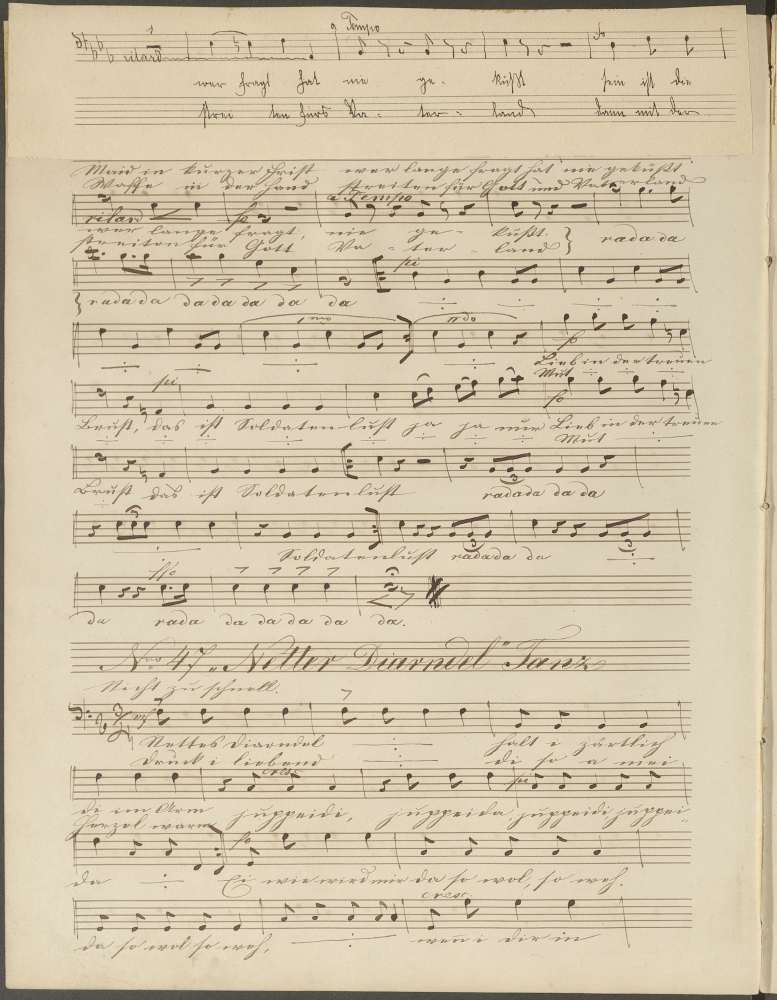 ritard a Tempo fo
wer fragt hat nie ge- küßt sein ist die
strei ten fürs Va- ter- land dann mit der
Maid in kurzer Frist wer lange fragt hat nie geküßt
Waffe in der Hand streiten für Gott und Vaterland
ritard fo a Tempo
wer lange fragt, nie ge- küßt. rada da
streiten für Gott Va- ter- land
pi
rada da da da da da da da
1mo 2do
fo
Lieb in der treuen
Mut
pi fo
Brust, das ist Soldatenlust ja ja nur Lieb in der treuen
Mut
Brust das ist Soldatenlust radada da da
3
3 3
Soldatenlust radada da
ffo
da rada da da da da da.
Nro 47 „Netter Diarndel" Tanz
Nicht zu schnell.
mf
Nettes Diarndel halt i zärtlich
Druck i liebend di so a mei
cres. pi
di im Arm juppeidi, juppeida, juppeidi juppei-
Herzel warm
fo
da Ei wie wird mir da so wol, so weh,
cres.
da so wol so weh, wenn i dir in